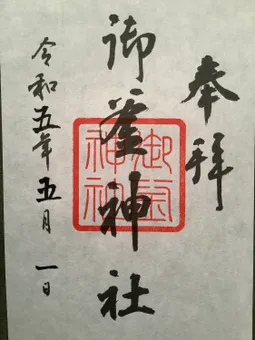 奉拝
御釜神社
令和五年五月一日
御釜神社